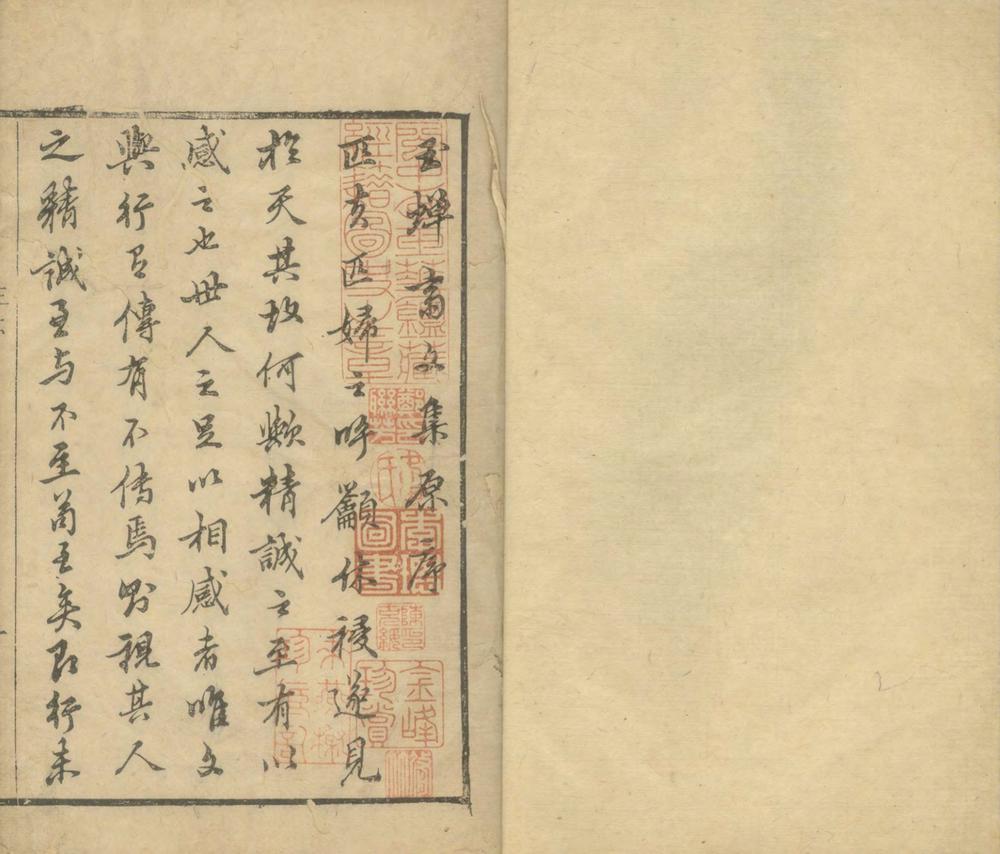 玉蟬齋文集原序
匹夫匹婦之呼籲休祲遂見
於天其故何歟精誠之至有以
感之也世人之足以相感者唯文
與行而傳有不傳焉則視其人
之精誠至与不至苟至矣即行未
金峰珍賞